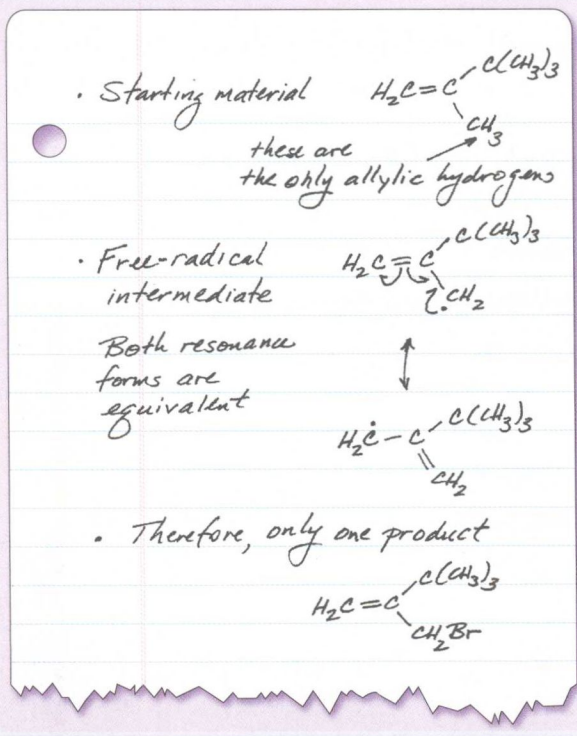 · Starting material H₂C=C C(CH₃)₃
CH₃
these are
the only allylic hydrogens
· Free-radical H₂C=C C(CH₃)₃
intermediate ·CH₂
Both resonance
forms are
equivalent
H₂Ċ–C C(CH₃)₃
CH₂
· Therefore, only one product
C(CH₃)₃
H₂C=C
CH₂Br